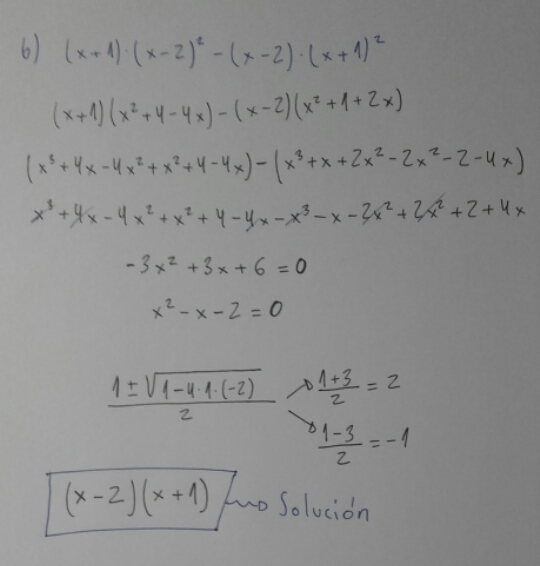 6) (x+1)·(x-2)² - (x-2)·(x+1)²
(x+1)(x²+4-4x)-(x-2)(x²+1+2x)
(x³+4x-4x²+x²+4-4x)-(x³+x+2x²-2x²-2-4x)
x³+4x-4x²+x²+4-4x-x³-x-2x²+2x²+2+4x
-3x²+3x+6=0
x²-x-2=0
1±√1-4·1·(-2) / 2
1+3 / 2 = 2
1-3 / 2 = -1
(x-2)(x+1) Solución